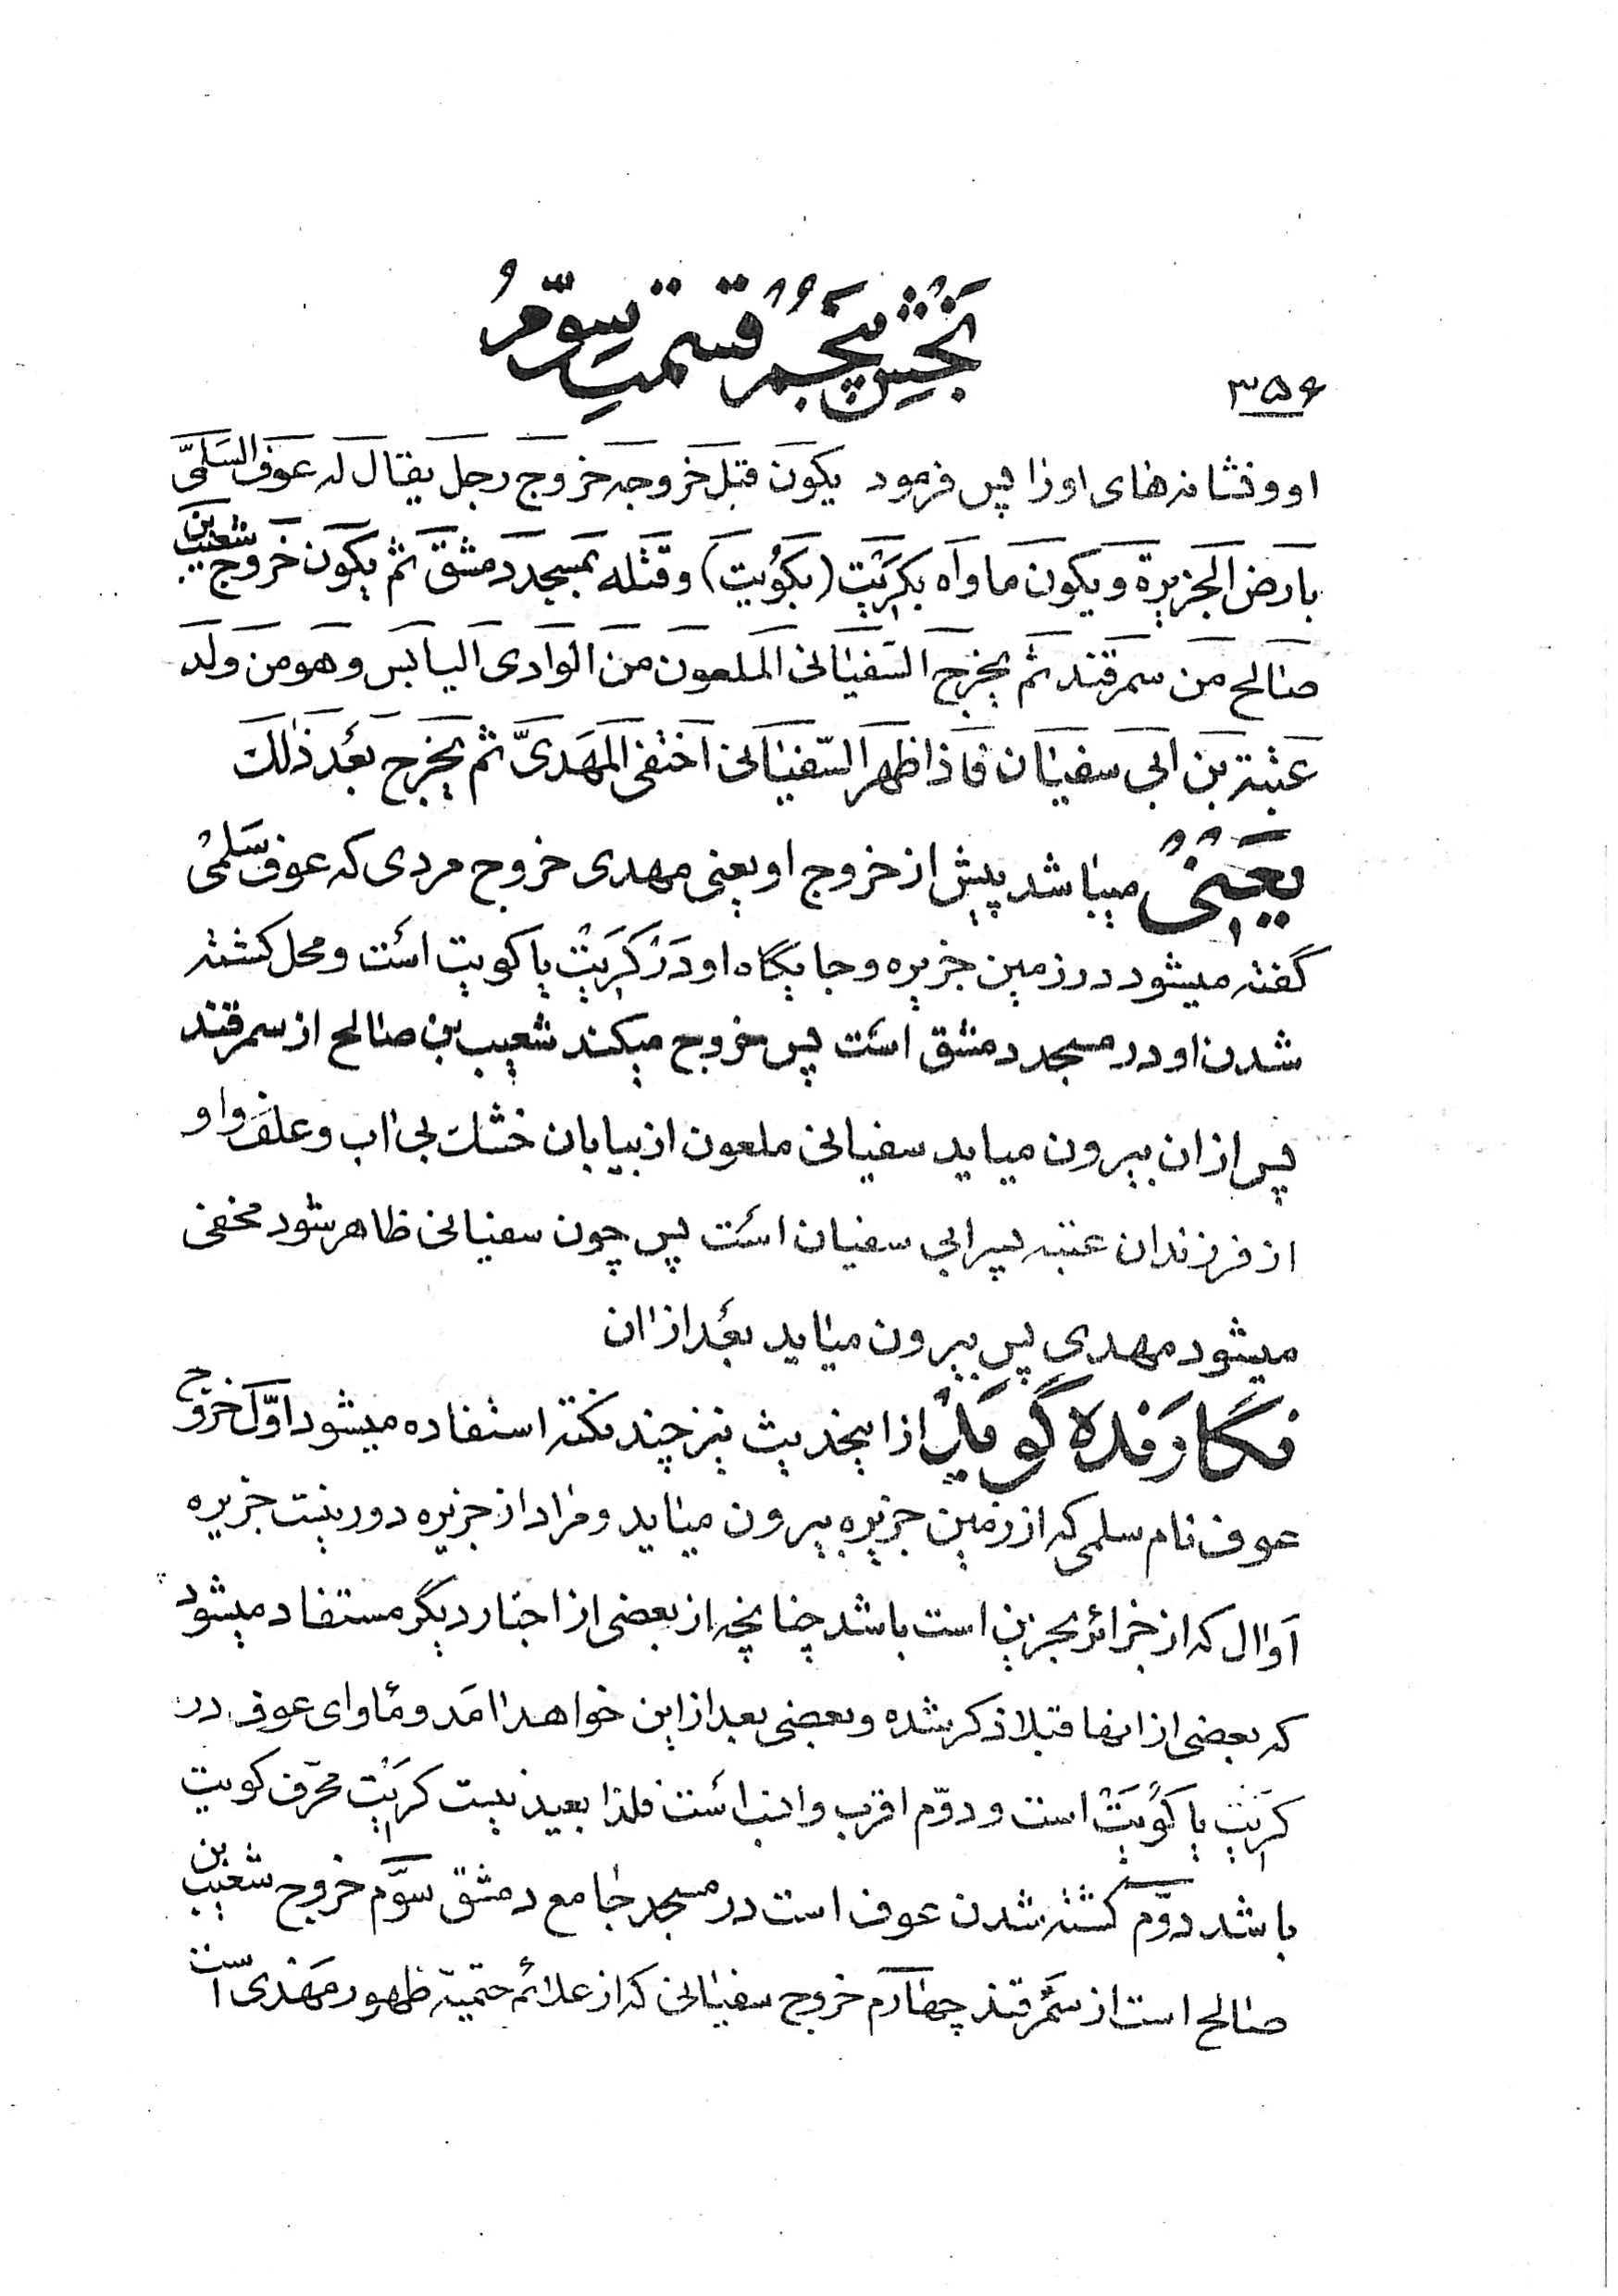 بخش پنجم قسمت سوم
۳۵۶
او و نشانه‌های او را پس فرمود یکون قبل خروجه خروج رجل یقال له عوف السلمی
بارض الجزیرة و یکون ماواه بکریت (بکویت) و قتله بمسجد دمشق ثم یکون خروج شعیب بن
صالح من سمرقند ثم یخرج السفیانی الملعون من الوادی الیابس و هو من ولد
عتبة بن ابی سفیان فاذا ظهر السفیانی اختفی المهدیّ ثم یخرج بعد ذلک
یعنی میباشد پیش از خروج او یعنی مهدی خروج مردی که عوف سلمی
گفته میشود در زمین جزیره و جایگاه او در کریت یا کویت است و محل کشته
شدن او در مسجد دمشق است پس خروج میکند شعیب بن صالح از سمرقند
پس از ان بیرون میاید سفیانی ملعون از بیابان خشک بی اب و علف و او
از فرزندان عتبه پسر ابی سفیان است پس چون سفیانی ظاهر شود مخفی
میشود مهدی پس بیرون میاید بعد از ان
نگارنده گوید از اینحدیث نیز چند نکته استفاده میشود اوّل خروج
عوف نام سلمی که از زمین جزیره بیرون میاید و مراد از جزیره دور نیست جزیره
اوال که از جزائر بحرین است باشد چنانچه از بعضی از اخبار دیگر مستفاد میشود
که بعضی از انها قبلا ذکر شده و بعضی بعد از این خواهد امد و ماوای عوف در
کریت یا کویت است و دوّم اقرب و انسب است فلذا بعید نیست کریت محرّف کویت
باشد دوّم کشته شدن عوف است در مسجد جامع دمشق سوّم خروج شعیب بن
صالح است از سمرقند چهارم خروج سفیانی که از علائم حتمیّه ظهور مهدی است